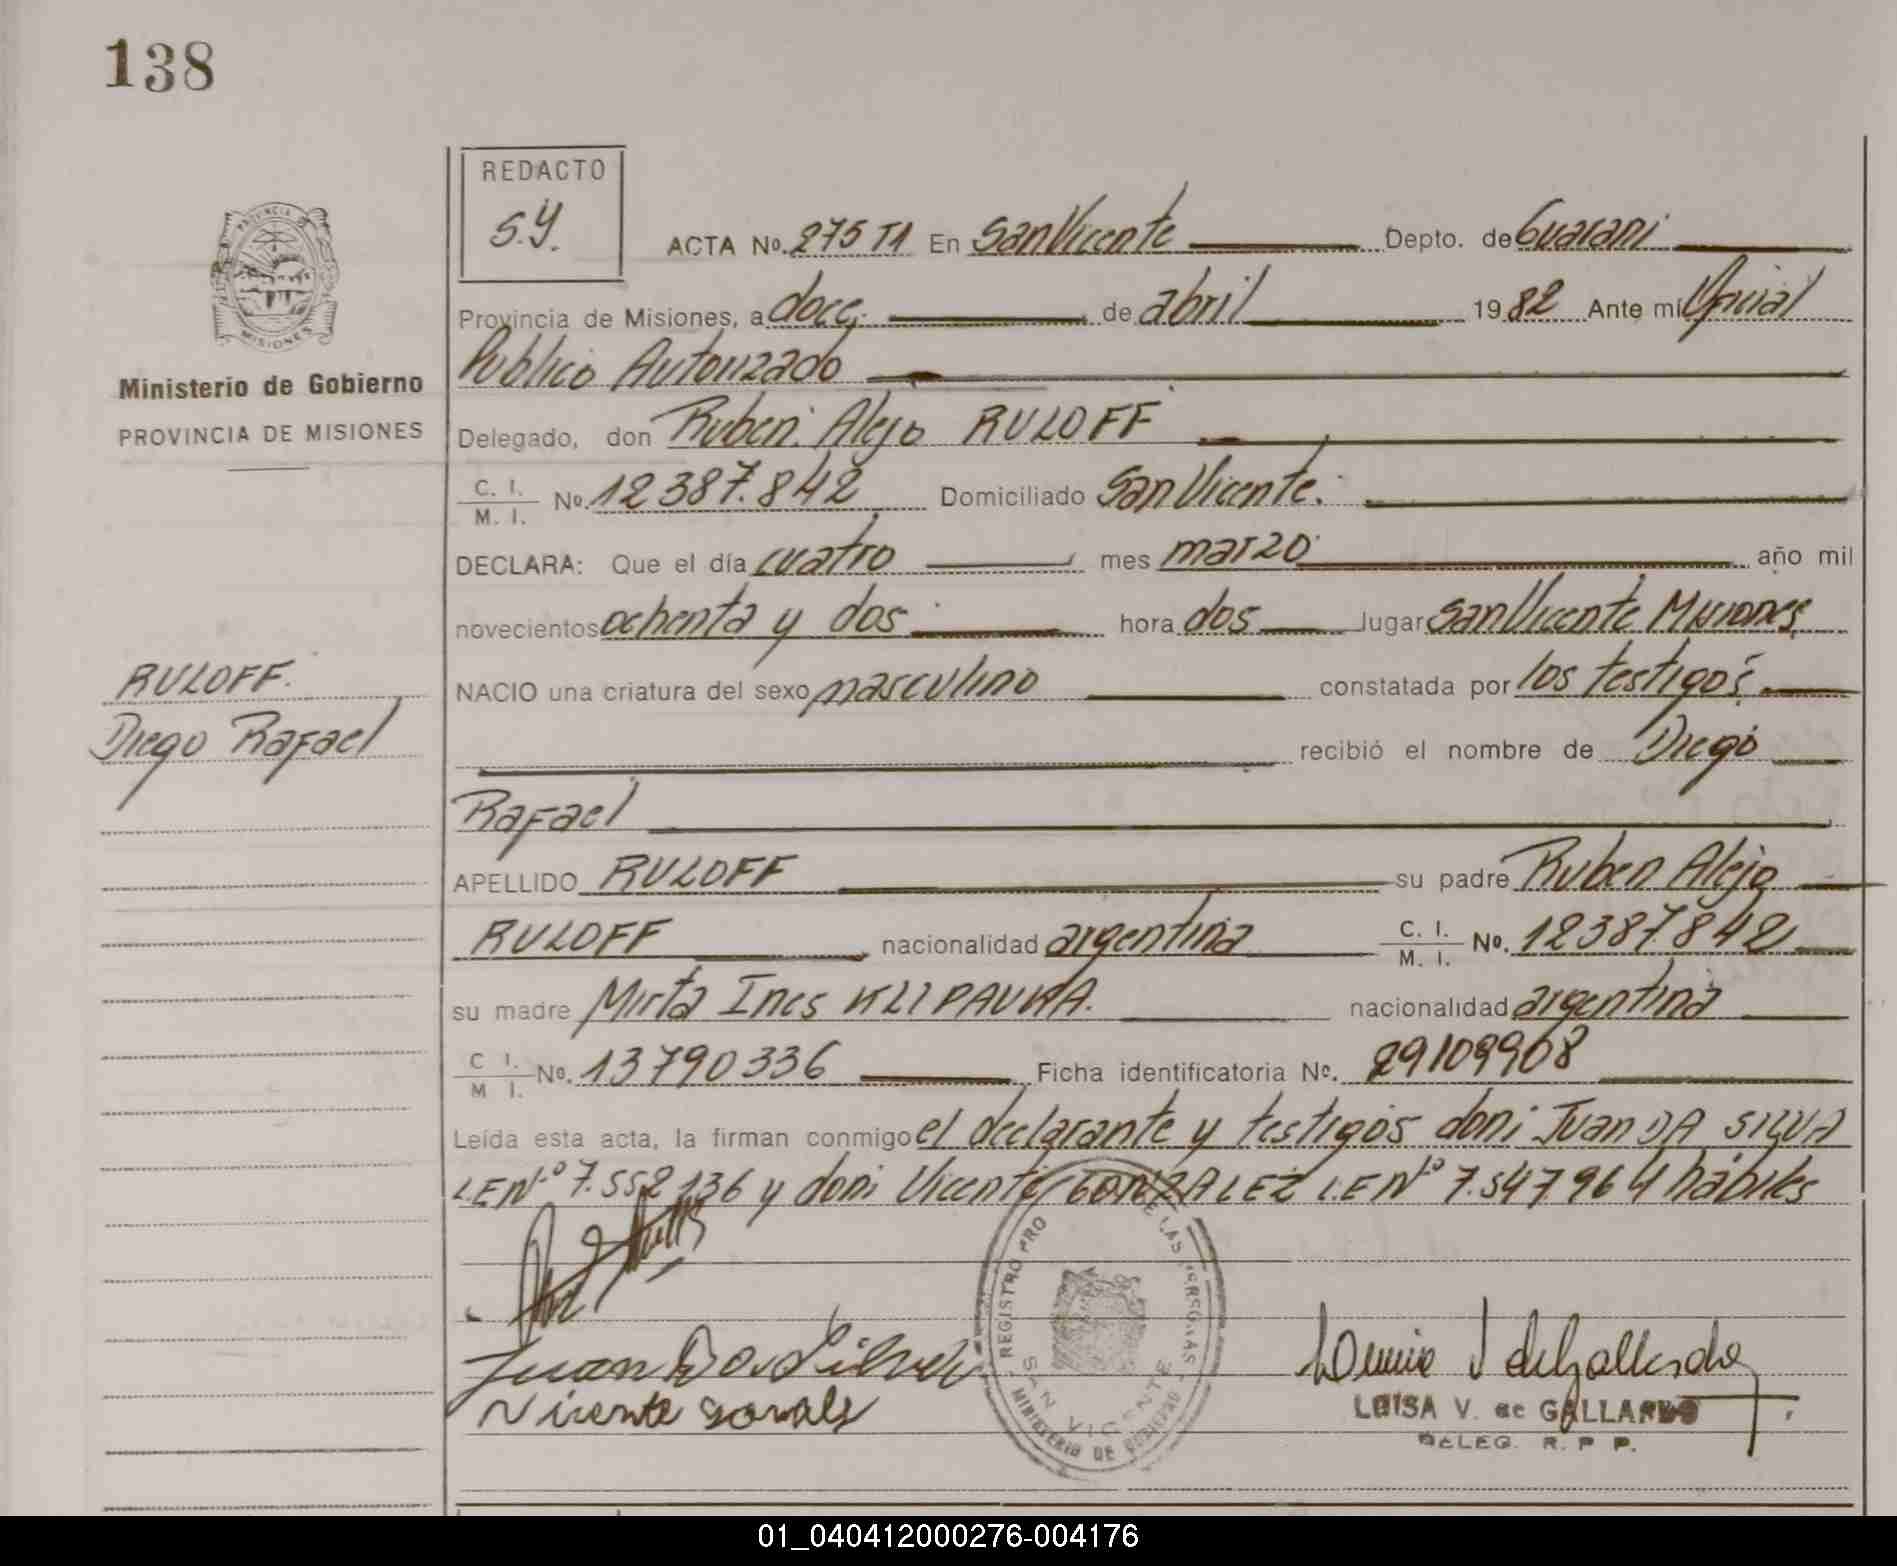 138
REDACTO
S.Y.
PROVINCIA DE
MISIONES
Ministerio de Gobierno
PROVINCIA DE MISIONES
RULOFF.
Diego Rafael
ACTA No. 275 T1 En San Vicente Depto. de Guarani
Provincia de Misiones, a doce de abril 1982 Ante mí Oficial
Publico Autorizado
Delegado, don Ruben Alejo RULOFF
C. I. / M. I. No. 12387.842 Domiciliado San Vicente.
DECLARA: Que el día cuatro mes marzo año mil
novecientos ochenta y dos hora dos lugar San Vicente Misiones
NACIO una criatura del sexo masculino constatada por los testigos
recibió el nombre de Diego
Rafael
APELLIDO RULOFF su padre Ruben Alejo
RULOFF nacionalidad argentina C. I. / M. I. No. 12387842
su madre Mirta Ines KLIPAUKA. nacionalidad argentina
C I. / M I. No. 13790336 Ficha identificatoria No. 29109968
Leída esta acta, la firman conmigo el declarante y testigos don: Juan DA SILVA
L.E Nº 7.552136 y don: Vicente GONZALEZ L.E Nº 7.547.964 habiles
REGISTRO PRO DE LAS PERSONAS
SAN VICENTE
MINISTERIO DE GOBIERNO
Juan Da Silva
Vicente
LUISA V. de GALLARDO
DELEG. R. P. P.
01_040412000276-004176